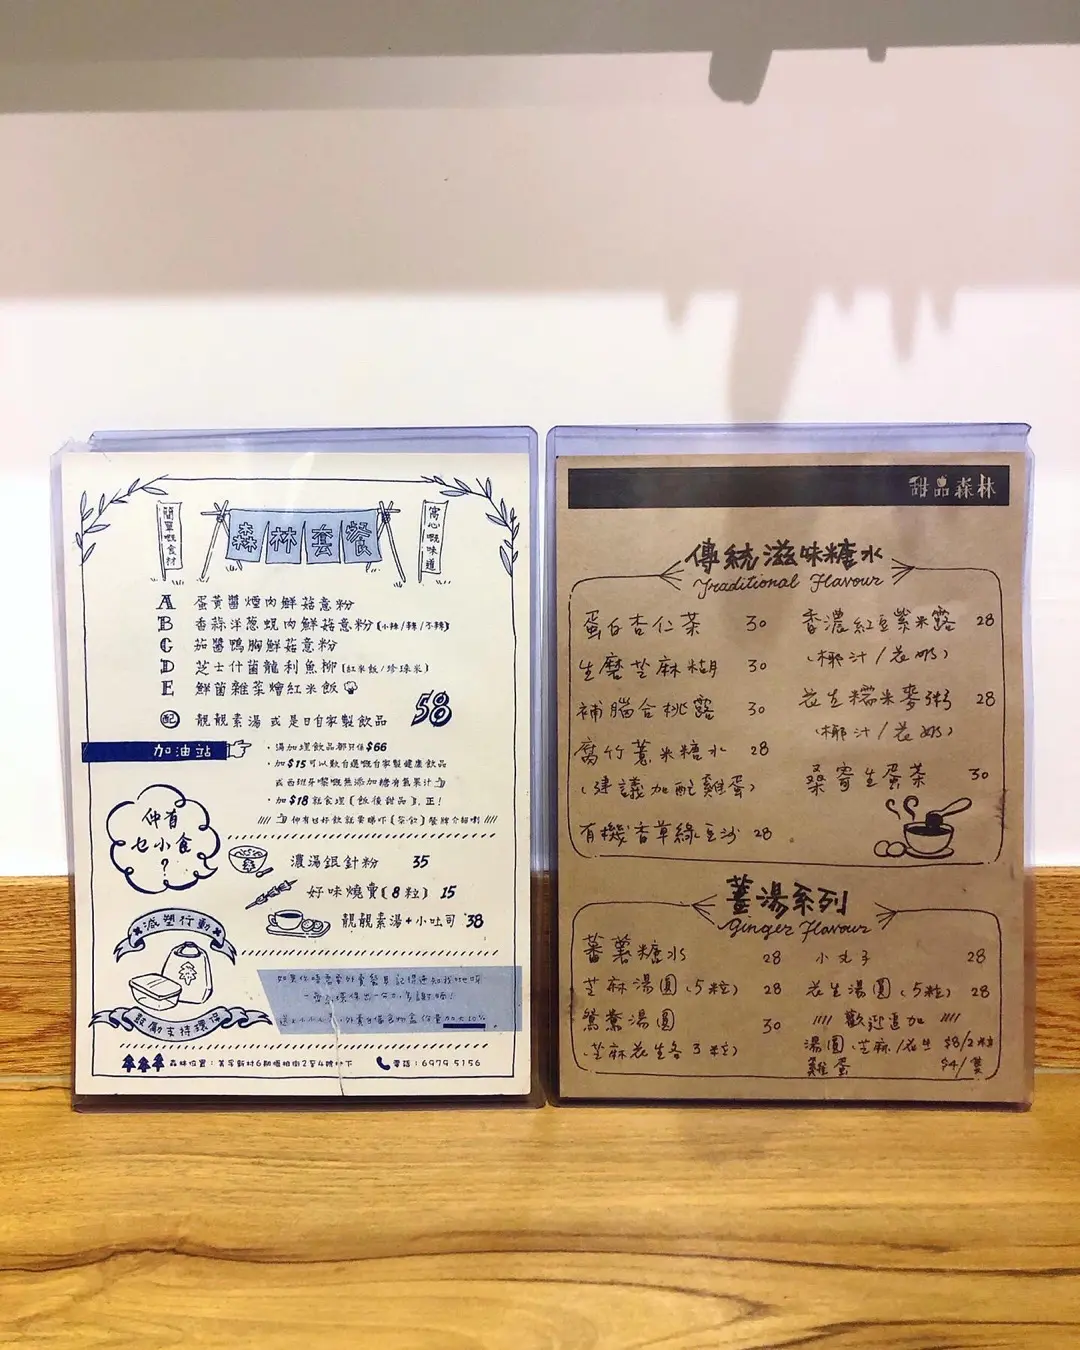 簡單嘅食材
森林套餐
窩心嘅味道
A 蛋黃醬煙肉鮮菇意粉
B 香蒜洋蔥蜆肉鮮菇意粉(小辣/辣/不辣)
C 茄醬鴨胸鮮菇意粉
D 芝士什菌龍利魚柳(紅米飯/珍珠米)
E 鮮菌雜菜燴紅米飯
配 靚靚素湯 或 是日自家製飲品 58
加油站
・湯加埋飲品都只係$66
・加$15可以歎自選嘅自家製健康飲品
或西班牙嚟嘅無添加糖有氣果汁
・加$18就食埋(飯後甜品),正!
仲有乜小食?
濃湯銀針粉 35
好味燒賣(8粒) 15
靚靚素湯+小吐司 38
減塑行動
鼓勵支持環保
如果你唔需要外賣餐具記得通知我哋呀
電話:6979 5156
甜品森林
傳統滋味糖水
Traditional Flavour
蛋白杏仁茶 30
生磨芝麻糊 30
補腦合桃露 30
腐竹薏米糖水 28
(建議加配雞蛋)
有機香草綠豆沙 28
香濃紅豆紫米露 28
(椰汁/花奶)
花生糯米麥粥 28
(椰汁/花奶)
桑寄生蛋茶 30
薑湯系列
Ginger Flavour
蕃薯糖水 28
芝麻湯圓(5粒) 28
鴛鴦湯圓 30
(芝麻花生各3粒)
小丸子 28
花生湯圓(5粒) 28
//// 歡迎追加 ////
湯圓(芝麻/花生 $8/2粒
雞蛋 $4/隻